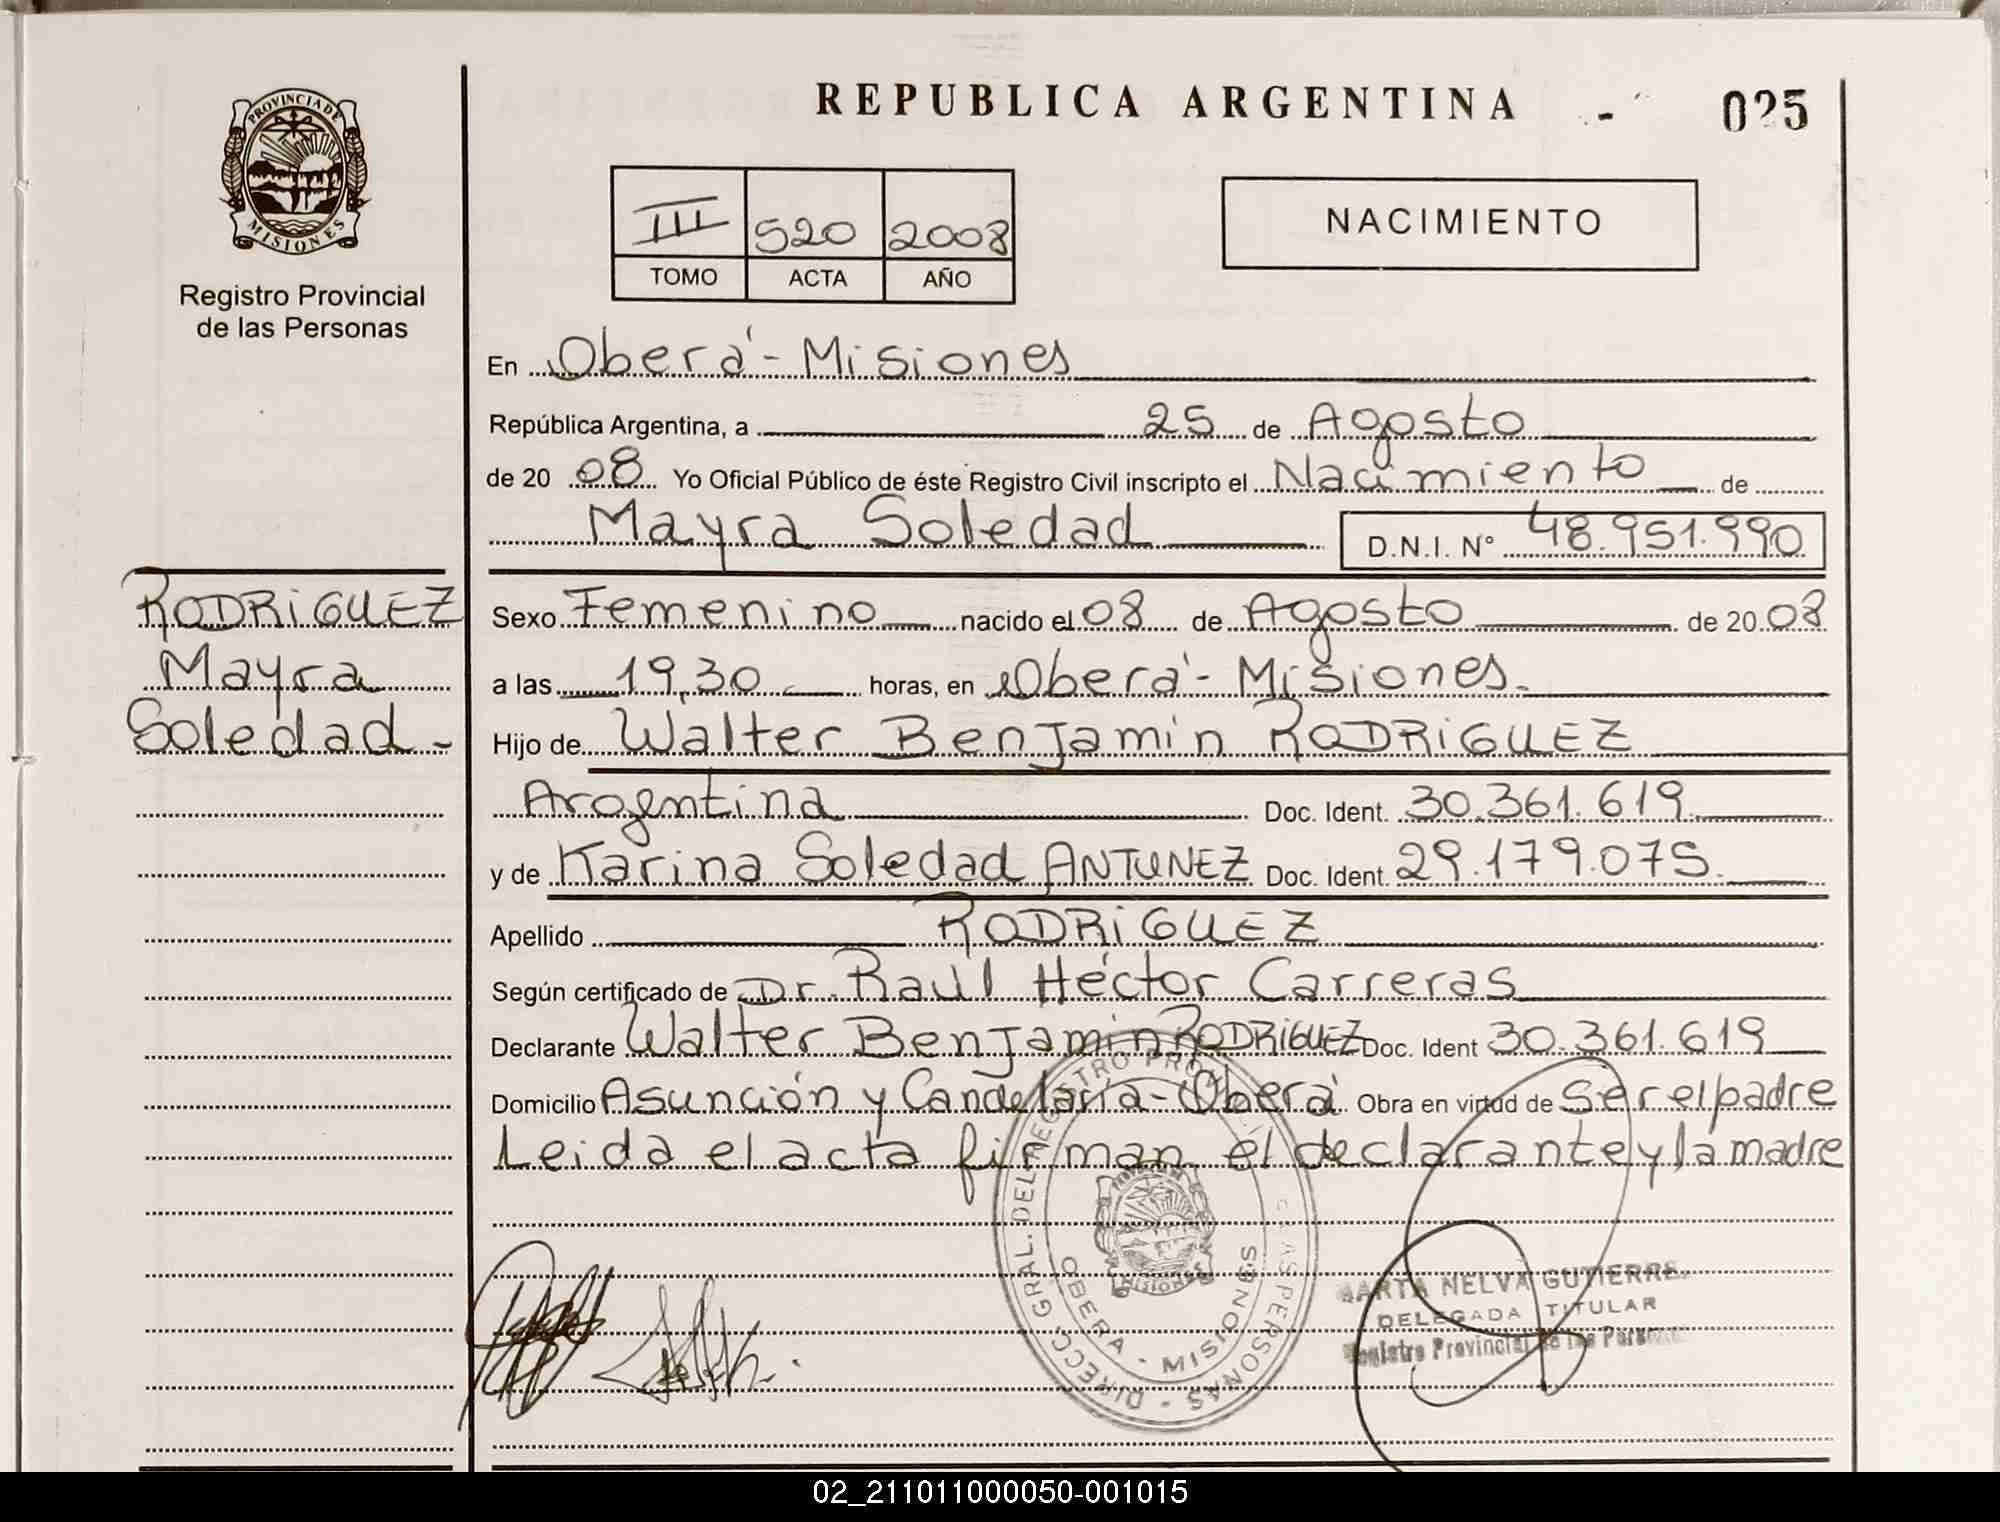 REPUBLICA ARGENTINA
025
PROVINCIA DE
MISIONES
Registro Provincial
de las Personas
III 520 2008
TOMO ACTA AÑO
NACIMIENTO
En Oberá - Misiones
República Argentina, a 25 de Agosto
de 20 08 Yo Oficial Público de éste Registro Civil inscripto el Nacimiento de
Mayra Soledad D.N.I. N° 48.951.990
RODRIGUEZ
Mayra
Soledad -
Sexo Femenino nacido el 08 de Agosto de 20 08
a las 19,30 horas, en Oberá - Misiones.
Hijo de Walter Benjamin RODRIGUEZ
Argentina Doc. Ident. 30.361.619
y de Karina Soledad ANTUNEZ Doc. Ident. 29.179.075.
Apellido RODRIGUEZ
Según certificado de Dr. Raúl Héctor Carreras
Declarante Walter Benjamin RODRIGUEZ Doc. Ident 30.361.619
Domicilio Asunción y Candelaria - Oberá Obra en virtud de ser el padre
Leida el acta firman el declarante y la madre
DIRECC. GRAL. DEL REGISTRO PERSONAS
OBERA - MISIONES
MISIONES
MARTA NELVA GUTIERRE
DELEGADA TITULAR
Registro Provincial de las Personas
02_211011000050-001015